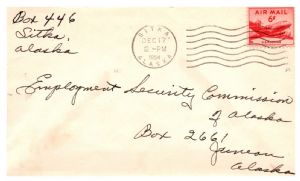 Box 446
Sitka,
Alaska
SITKA
DEC 17
12 - PM
1954
ALASKA
AIR MAIL
6¢
Employment Security Commission
of Alaska
Box 2661
Juneau
Alaska